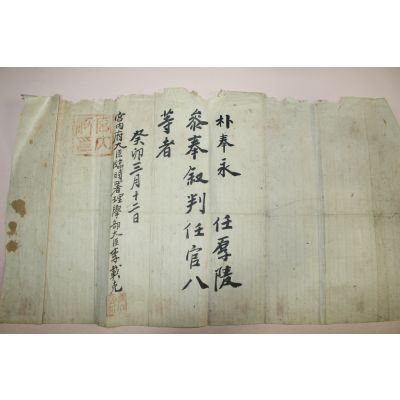 朴奉永 任厚陵
叅奉叙判任官八
等者
癸卯三月十二日
宮內府大臣臨時署理學部大臣李載克